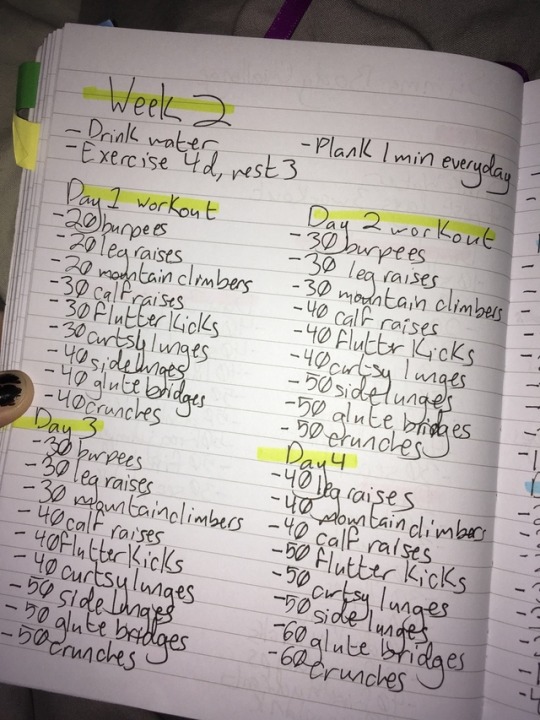 Week 2
- Drink water
- Exercise 4d, rest 3
- Plank 1 min everyday
Day 1 workout
- 20 burpees
- 20 leg raises
- 20 mountain climbers
- 30 calf raises
- 30 flutter kicks
- 30 curtsy lunges
- 40 side lunges
- 40 glute bridges
- 40 crunches
Day 2 workout
- 30 burpees
- 30 leg raises
- 30 mountain climbers
- 40 calf raises
- 40 flutter kicks
- 40 curtsy lunges
- 50 side lunges
- 50 glute bridges
- 50 crunches
Day 3
- 30 burpees
- 30 leg raises
- 30 mountain climbers
- 40 calf raises
- 40 flutter kicks
- 40 curtsy lunges
- 50 side lunges
- 50 glute bridges
- 50 crunches
Day 4
- 40 leg raises
- 40 mountain climbers
- 40 calf raises
- 50 flutter kicks
- 50 curtsy lunges
- 50 side lunges
- 60 glute bridges
- 60 crunches